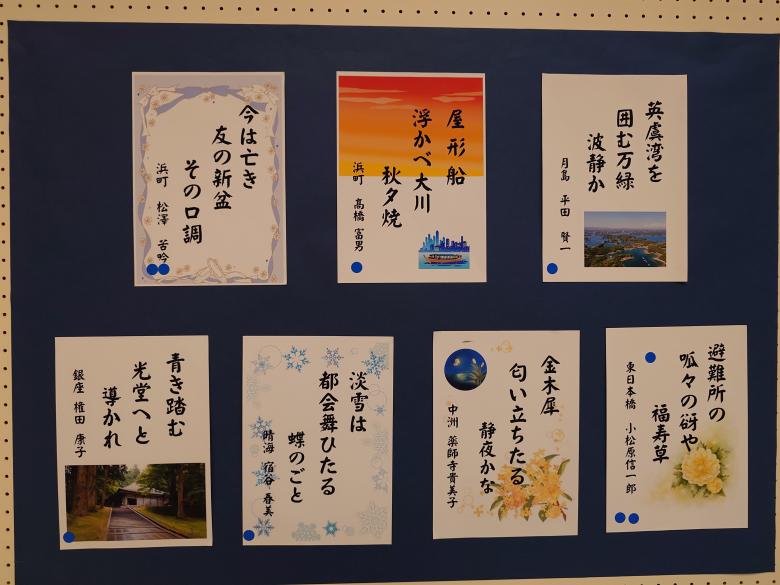 英虞湾を
囲む万緑
波静か
月島 平田 賢一
屋形船
浮かべ大川
秋夕焼
浜町 高橋 富男
今は亡き
友の新盆
その口調
浜町 松澤 苦吟
避難所の
呱々の谺や
福寿草
東日本橋 小松原信一郎
金木犀
匂い立ちたる
静夜かな
中洲 薬師寺貴美子
淡雪は
都会舞ひたる
蝶のごと
晴海 宿谷 春美
青き踏む
光堂へと
導かれ
銀座 権田 康子